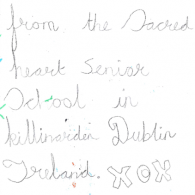 from the Sacred
heart Senior
School in
killinarden Dublin
Ireland. XOX